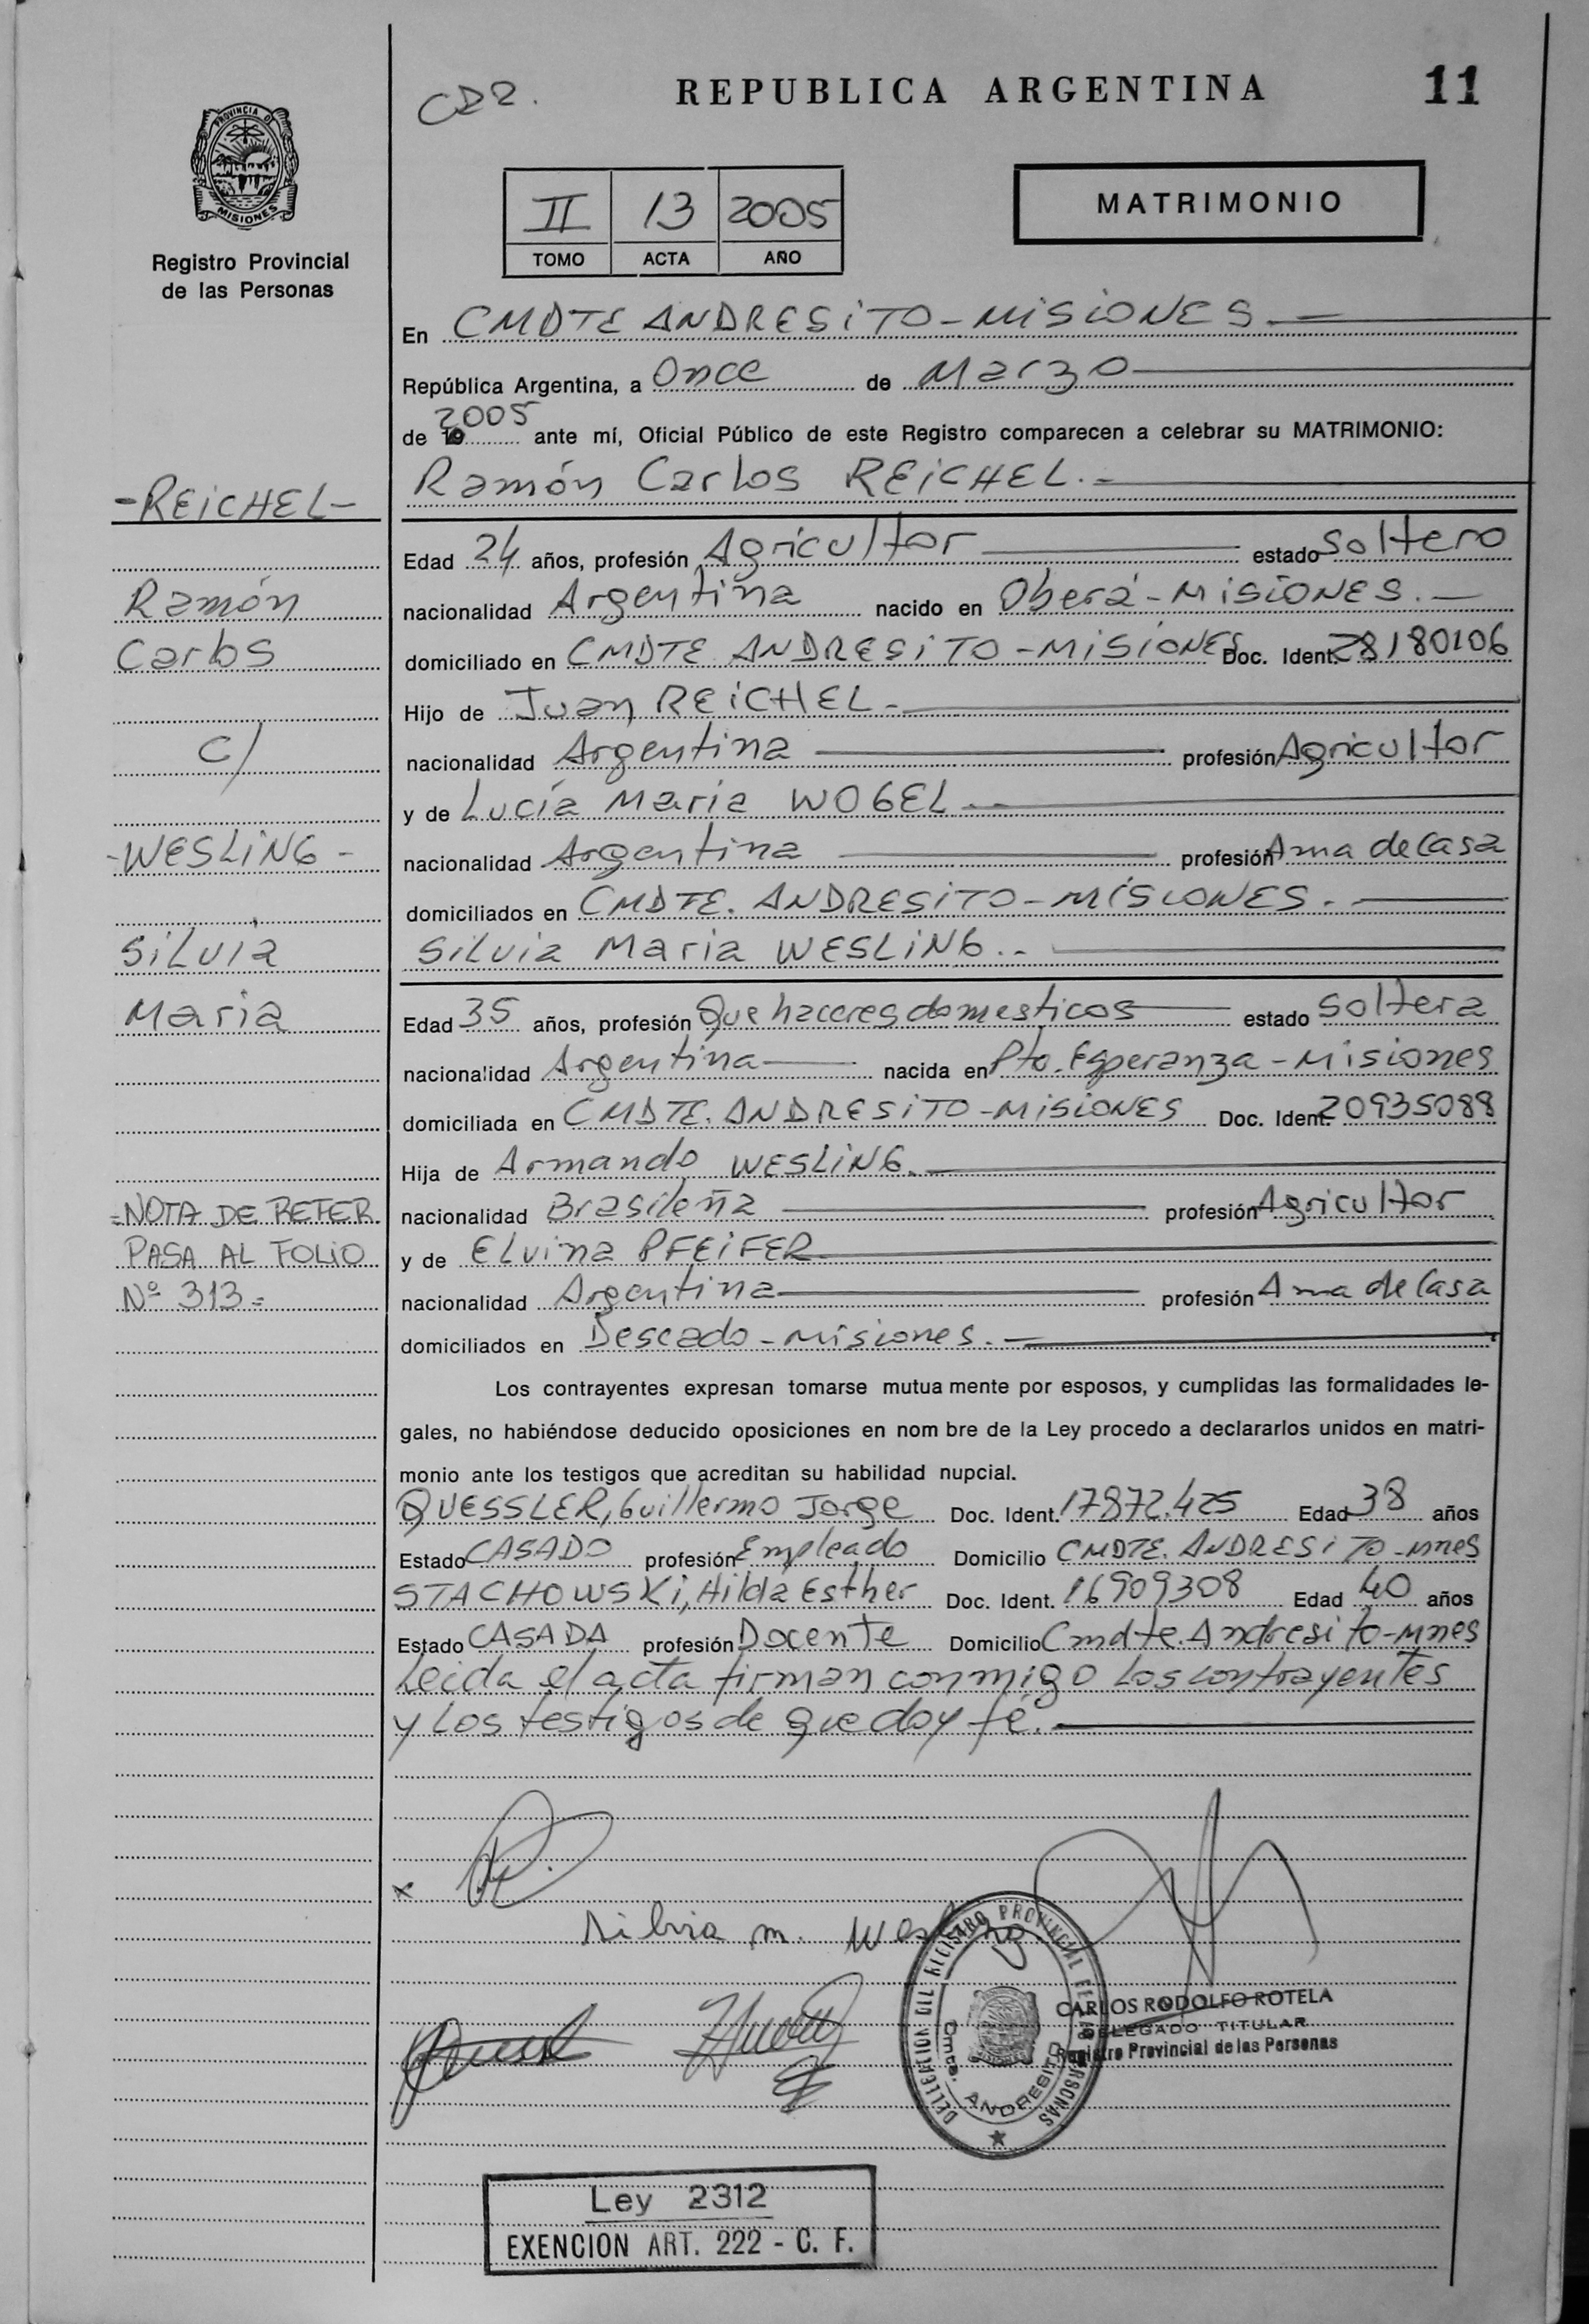 REPUBLICA ARGENTINA 11
PROVINCIA DE
MISIONES
Registro Provincial
de las Personas
II 13 2005
TOMO ACTA AÑO
MATRIMONIO
En CMDTE ANDRESITO - MISIONES
República Argentina, a Once de Marzo
de 2005 ante mí, Oficial Público de este Registro comparecen a celebrar su MATRIMONIO:
Ramón Carlos REICHEL.-
-REICHEL-
Edad 24 años, profesión Agricultor estado Soltero
Ramón
nacionalidad Argentina nacido en Oberá - MISIONES.-
Carlos
domiciliado en CMDTE. ANDRESITO - MISIONES Doc. Ident. 28180106
Hijo de Juan REICHEL.-
C/
nacionalidad Argentina profesión Agricultor
y de Lucía Maria WOGEL.-
-WESLING-
nacionalidad Argentina profesión Ama de Casa
domiciliados en CMDTE. ANDRESITO - MISIONES.
Silvia
Silvia Maria WESLING.-
Maria
Edad 35 años, profesión Que haceres domesticos estado Soltera
nacionalidad Argentina nacida en Pto. Esperanza - Misiones
domiciliada en CMDTE. ANDRESITO - MISIONES Doc. Ident. 20935088
Hija de Armando WESLING.
=NOTA DE REFER.
nacionalidad Brasileña profesión Agricultor
PASA AL FOLIO
y de Elvina PFEIFER
Nº 313=
nacionalidad Argentina profesión Ama de Casa
domiciliados en Deseado - Misiones.-
Los contrayentes expresan tomarse mutua mente por esposos, y cumplidas las formalidades le-
gales, no habiéndose deducido oposiciones en nom bre de la Ley procedo a declararlos unidos en matri-
monio ante los testigos que acreditan su habilidad nupcial.
QUESSLER, Guillermo Jorge Doc. Ident. 17872.425 Edad 38 años
Estado CASADO profesión Empleado Domicilio CMDTE. ANDRESITO - Mnes
STACHOWSKI, Hilda Esther Doc. Ident. 16909308 Edad 40 años
Estado CASADA profesión Docente Domicilio Cmdte. Andresito - Mnes
Leida el acta firman conmigo los contrayentes
y los testigos de que doy fé.
Silvia m. Wesling
REGISTRO PROVINCIAL DE LAS PERSONAS
Cmte. ANDRESITO
CARLOS RODOLFO ROTELA
DELEGADO TITULAR
Registro Provincial de las Personas
Ley 2312
EXENCION ART. 222 - C. F.